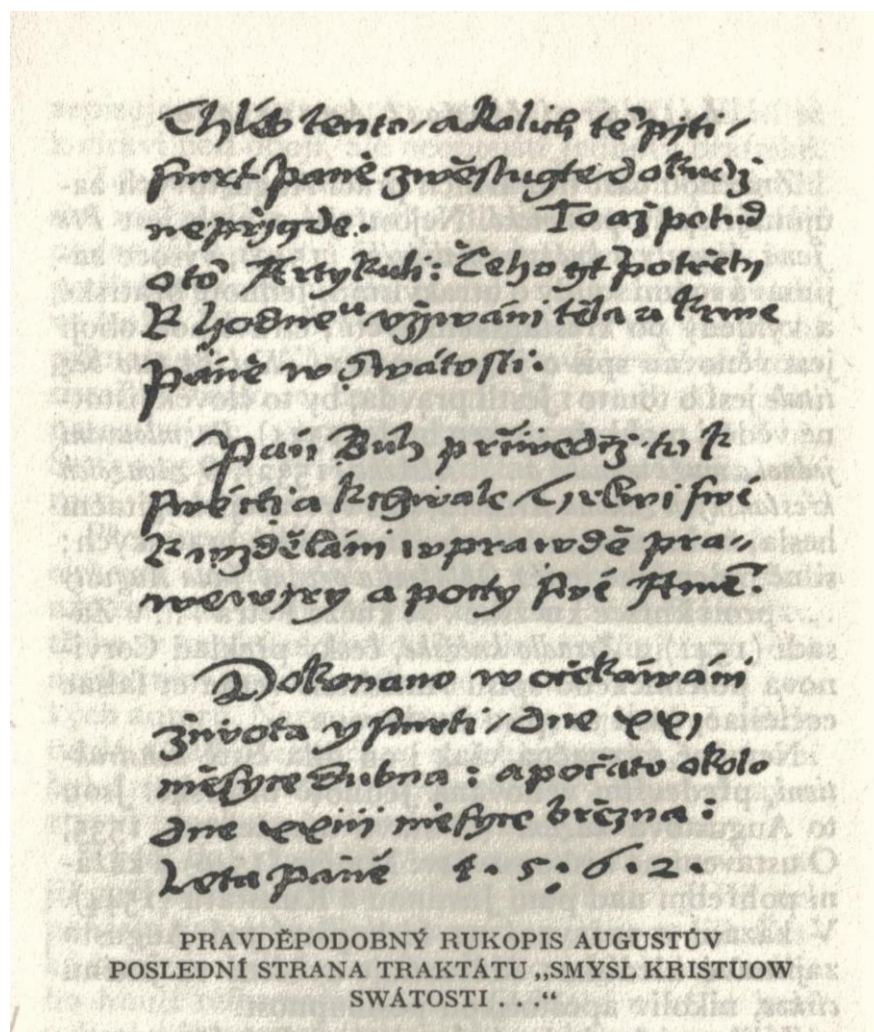 Chléb tento, a kalich té° pjti,
smrt Páně zwěstugte dokudz
nepřigde. To až potud
o té° Artykuli: Čeho gt potřebj
K hodne^u vžjwáni těla a krwe
Páně w Swátosti:
Pán Buh přiwediž to k
swé cti a k chwale Cjrkwi swé
k wzděláni w prawdě pra-,
we wjry a pocty swé Amē:
Dokonano w očekáwáni
žiwota y smrti, dne xxj
měsyce dubna: a počato okolo
dne xxiij měsyce března:
Leta Páně 1.5.6.2.
PRAVDĚPODOBNÝ RUKOPIS AUGUSTŮV
POSLEDNÍ STRANA TRAKTÁTU „SMYSL KRISTUOW
SWÁTOSTI . . .“